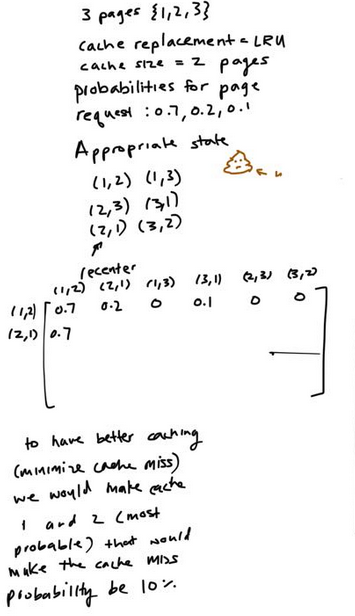 3 pages {1,2,3}
cache replacement = LRU
cache size = 2 pages
probabilities for page
request : 0.7, 0.2, 0.1
Appropriate state
(1,2) (1,3)
(2,3) (3,1)
(2,1) (3,2)
recenter
(1,2) (2,1) (1,3) (3,1) (2,3) (3,2)
(1,2) 0.7 0.2 0 0.1 0 0
(2,1) 0.7
to have better caching
(minimize cache miss)
we would make cache
1 and 2 (most
probable) that would
make the cache miss
probability be 10%.